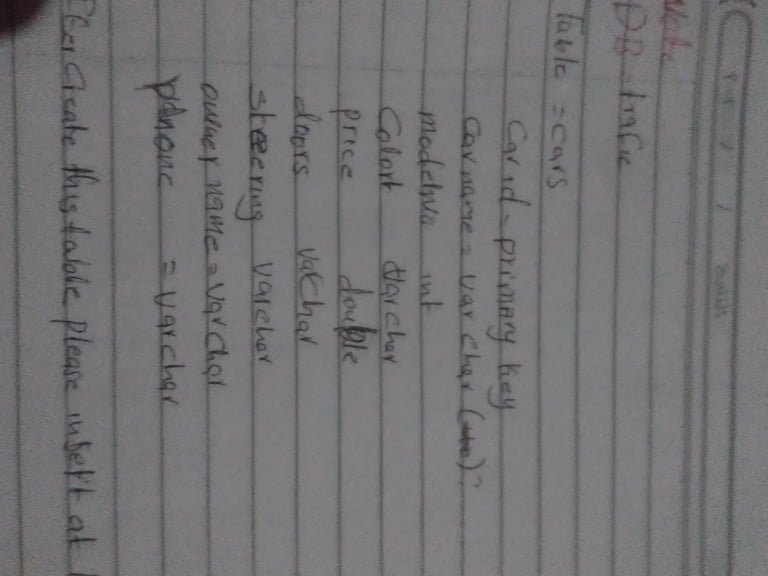 Note
DB = trafic
Table = cars
Car id = primary key
Car name = var char ( )
modelno int
Colort varchar
price double
doors varchar
steering varchar
owner name = varchar
= varchar
create this table please insert at